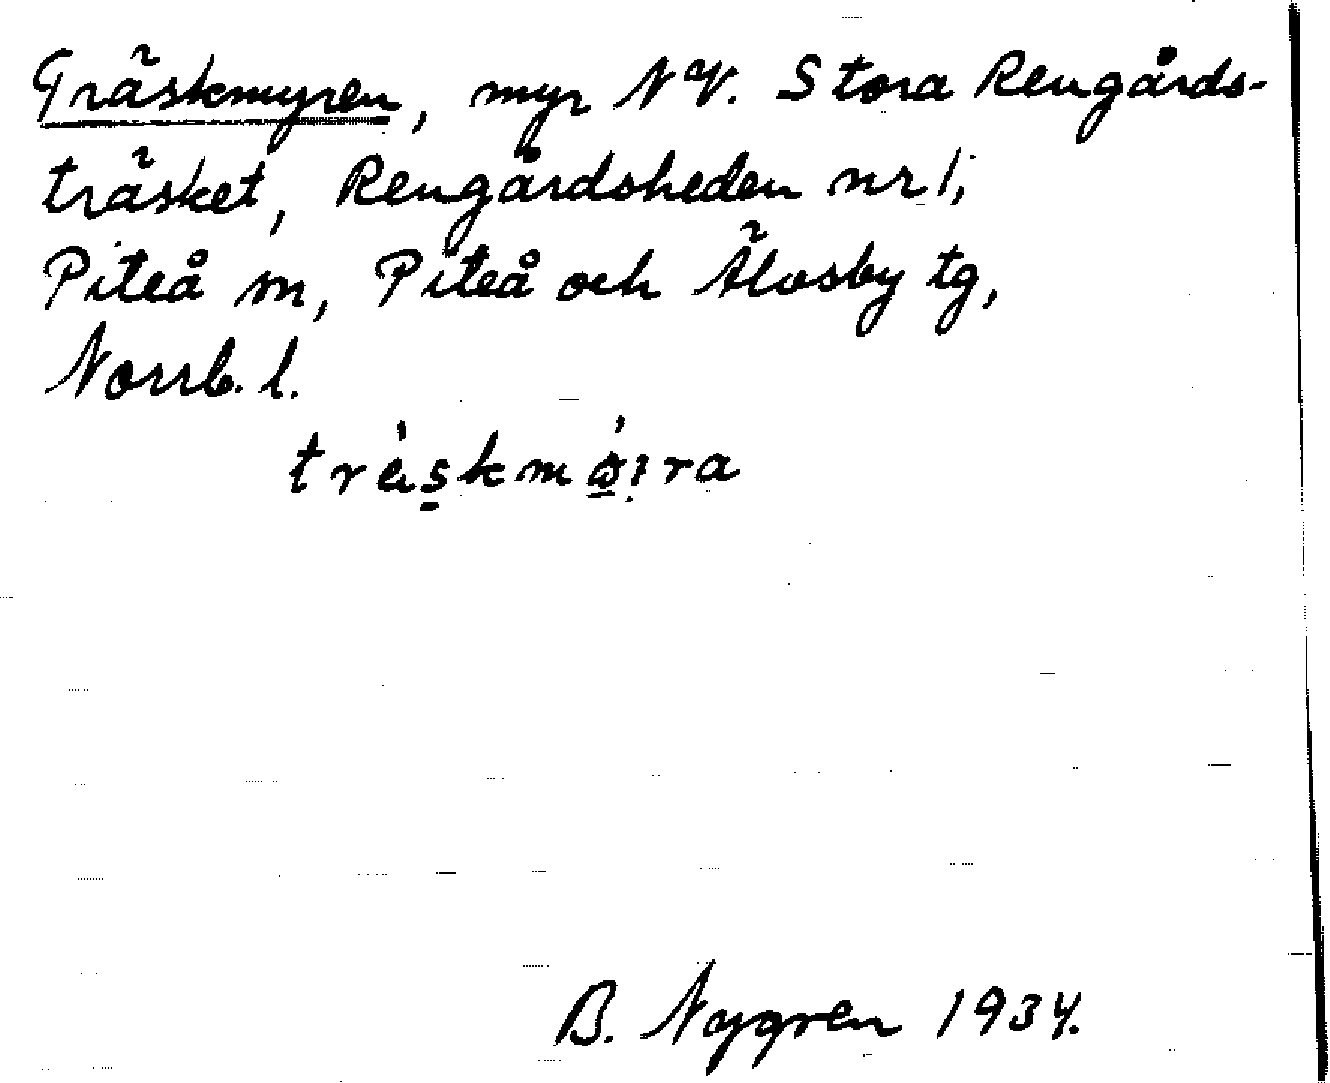 Träskmyren, myr NV. Stora Rengårds-
träsket, Rengårdsheden nr 1,
Piteå m, Piteå och Älvsby tg,
Norrb. l.
B. Nygren 1934.